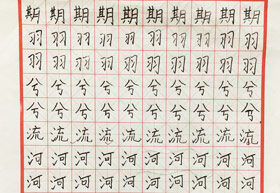 期期期期期期期期期
羽羽羽羽羽羽羽羽羽
羽羽羽羽羽羽羽羽羽
兮兮兮兮兮兮兮兮兮
兮兮兮兮兮兮兮兮兮
流流流流流流流流流
河河河河河河河河河
河河河河河河河河河